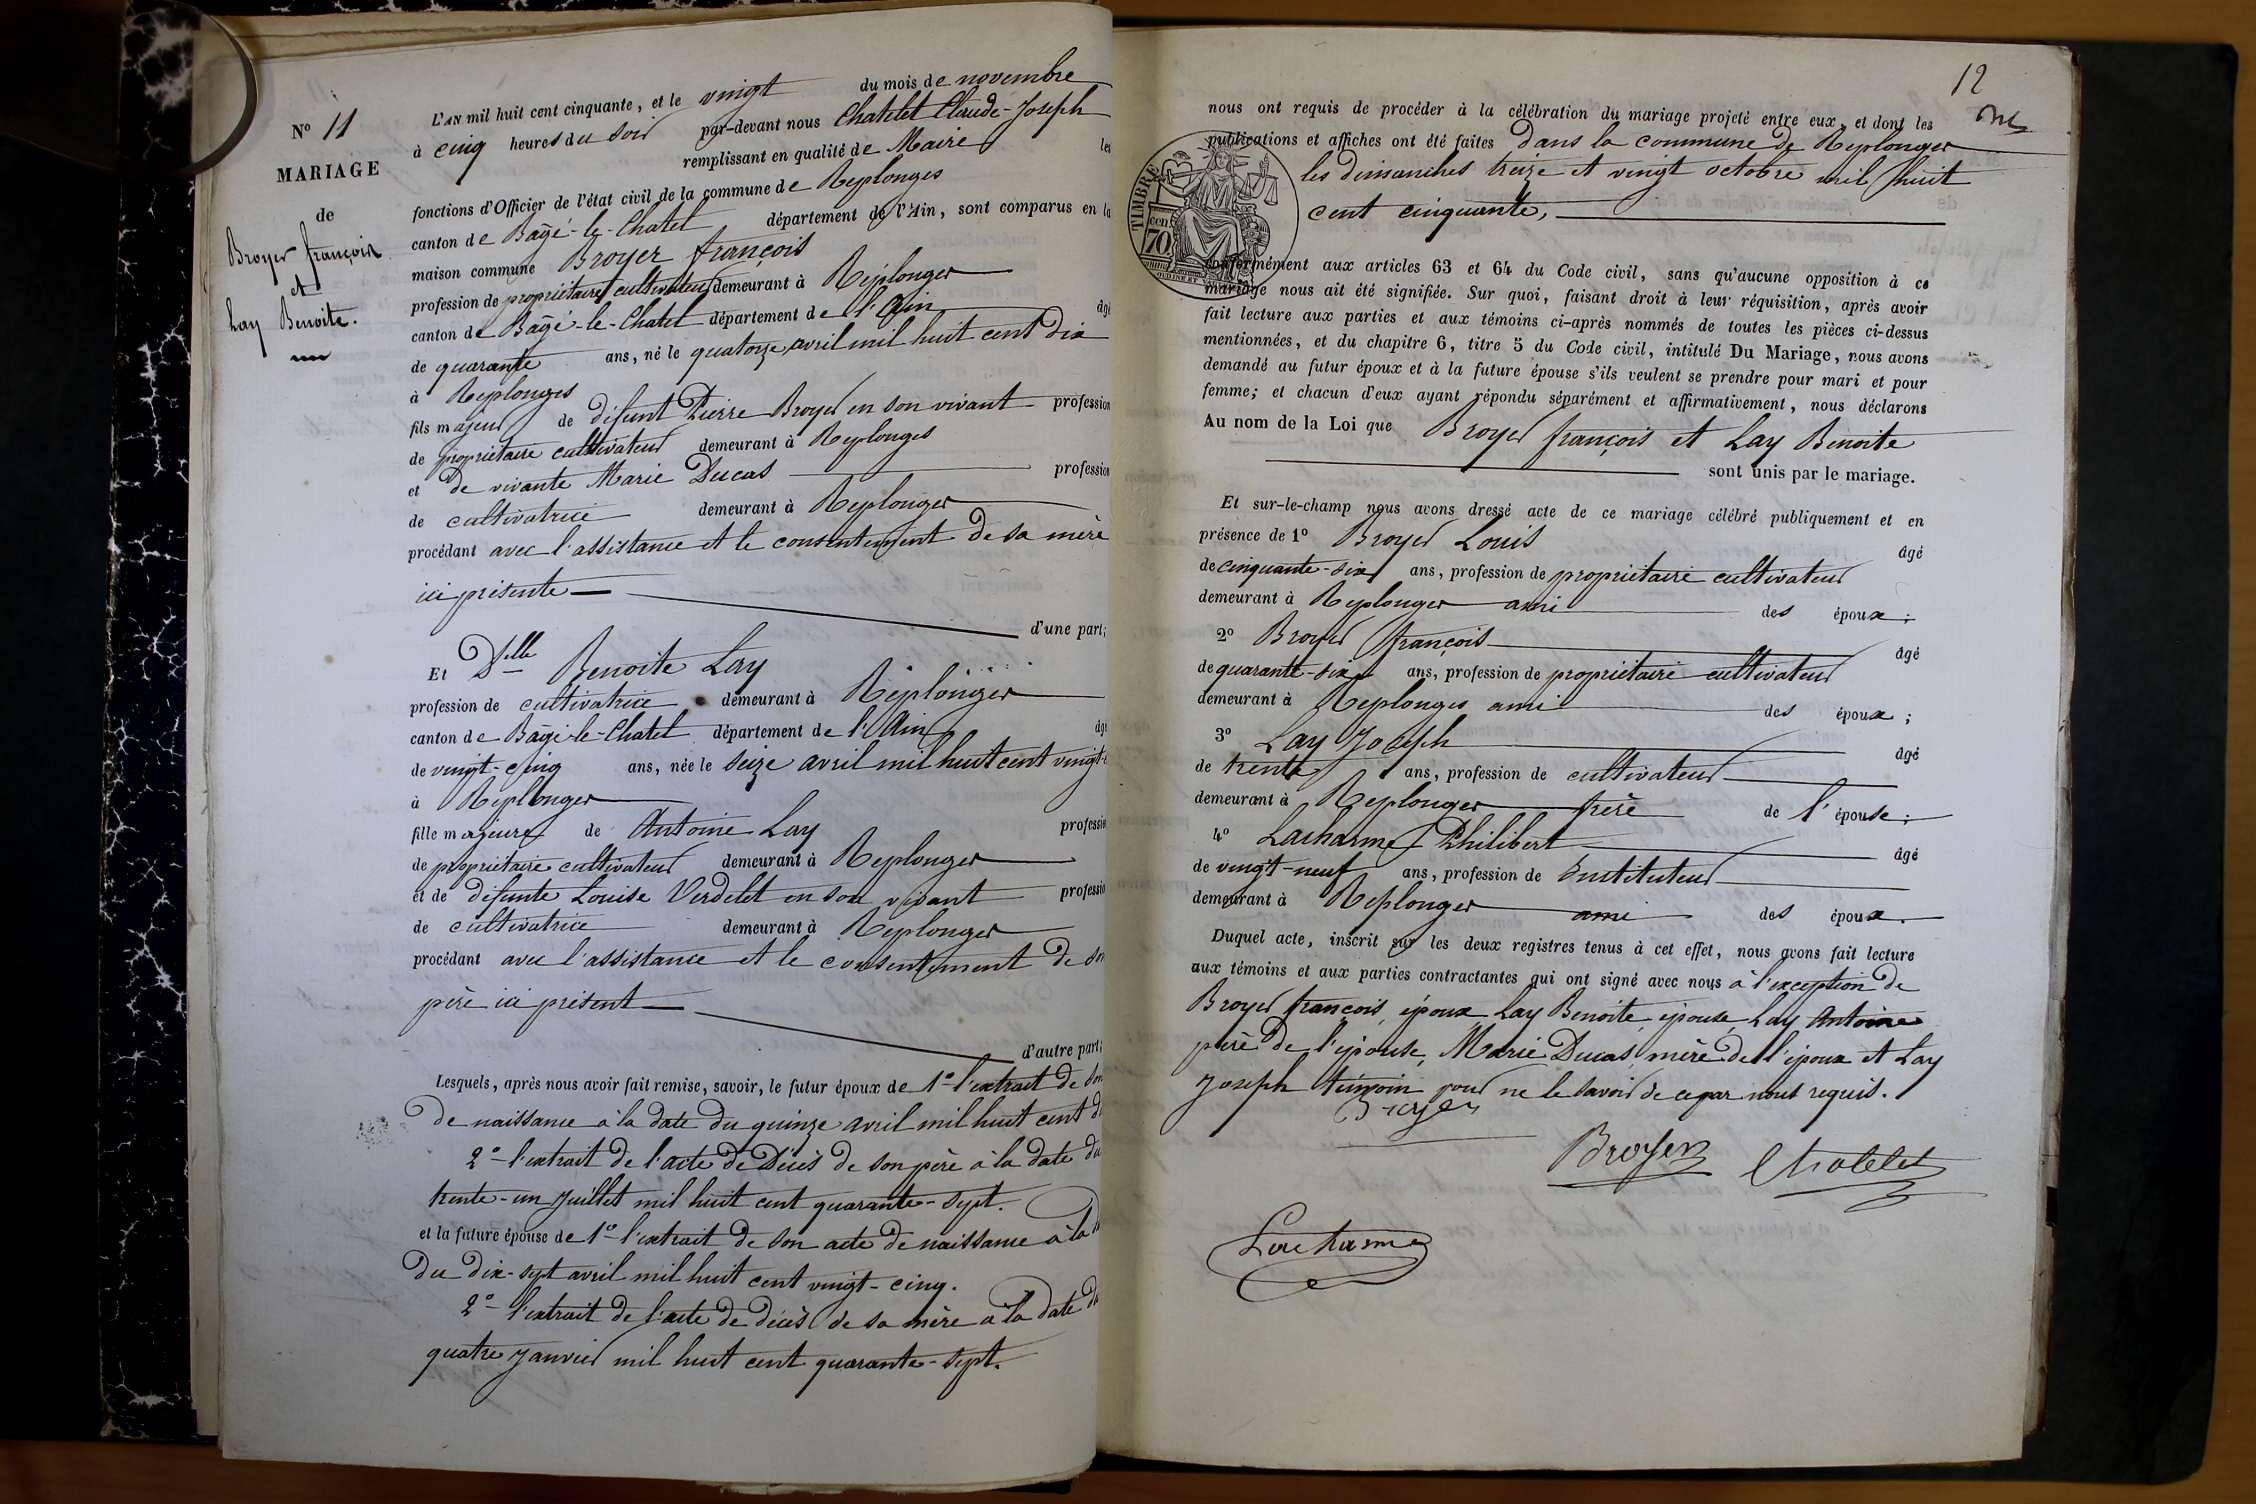 N° 11
MARIAGE
de
Broyer françois
et
Lay Benoite.
L'AN mil huit cent cinquante, et le vingt du mois de novembre
à cinq heures du soir par-devant nous Chatelet Claude-Joseph
remplissant en qualité de Maire les
fonctions d'Officier de l'état civil de la commune de Replonges
canton de Bagé-le-Chatel département de l'Ain, sont comparus en la
maison commune Broyer françois
profession de propriétaire cultivateur demeurant à Replonges
canton de Bagé-le-Chatel département de l'Ain âgé
de quarante ans, né le quatorze avril mil huit cent dix
à Replonges
fils majeur de défunt Pierre Broyer en son vivant profession
de propriétaire cultivateur demeurant à Replonges
et de vivante Marie Ducas profession
de cultivatrice demeurant à Replonges
procédant avec l'assistance et le consentement de sa mère
ici présente
d'une part;
Et Dlle Benoite Lay
profession de cultivatrice demeurant à Replonges
canton de Bagé-le-Chatel département de l'Ain âgé
de vingt-cinq ans, née le seize avril mil huit cent vingt-
à Replonges
fille majeure de Antoine Lay profession
de propriétaire cultivateur demeurant à Replonges
et de défunte Louise Verdelet en son vivant profession
de cultivatrice demeurant à Replonges
procédant avec l'assistance et le consentement de son
père ici présent
d'autre part;
Lesquels, après nous avoir fait remise, savoir, le futur époux de 1° l'extrait de son
de naissance à la date du quinze avril mil huit cent
2° l'extrait de l'acte de décès de son père à la date du
trente-un Juillet mil huit cent quarante-sept.
et la future épouse de 1° l'extrait de son acte de naissance à la
du dix-sept avril mil huit cent vingt-cinq.
2° l'extrait de l'acte de décès de sa mère à la date du
quatre Janvier mil huit cent quarante-sept.
12
nous ont requis de procéder à la célébration du mariage projeté entre eux, et dont les
publications et affiches ont été faites dans la commune de Replonges
les dimanches treize et vingt octobre mil huit
cent cinquante,
TIMBRE
70
conformément aux articles 63 et 64 du Code civil, sans qu'aucune opposition à ce
mariage nous ait été signifiée. Sur quoi, faisant droit à leur réquisition, après avoir
fait lecture aux parties et aux témoins ci-après nommés de toutes les pièces ci-dessus
mentionnées, et du chapitre 6, titre 5 du Code civil, intitulé Du Mariage, nous avons
demandé au futur époux et à la future épouse s'ils veulent se prendre pour mari et pour
femme; et chacun d'eux ayant répondu séparément et affirmativement, nous déclarons
Au nom de la Loi que Broyer françois et Lay Benoite
sont unis par le mariage.
Et sur-le-champ nous avons dressé acte de ce mariage célébré publiquement et en
présence de 1° Broyer Louis âgé
de cinquante-six ans, profession de propriétaire cultivateur
demeurant à Replonges ami des époux;
2° Broyer françois âgé
de quarante-six ans, profession de propriétaire cultivateur
demeurant à Replonges ami des époux;
3° Lay Joseph âgé
de trente ans, profession de cultivateur
demeurant à Replonges frère de l'épouse;
4° Lacharme Philibert âgé
de vingt-neuf ans, profession de Instituteur
demeurant à Replonges ami des époux.
Duquel acte, inscrit sur les deux registres tenus à cet effet, nous avons fait lecture
aux témoins et aux parties contractantes qui ont signé avec nous à l'exception de
Broyer françois, époux Lay Benoite, épouse, Lay Antoine
père de l'épouse, Marie Ducas mère de l'époux et Lay
Joseph témoin pour ne le savoir de ce par nous requis.
Broyer
Broyer Chatelet
Lacharme